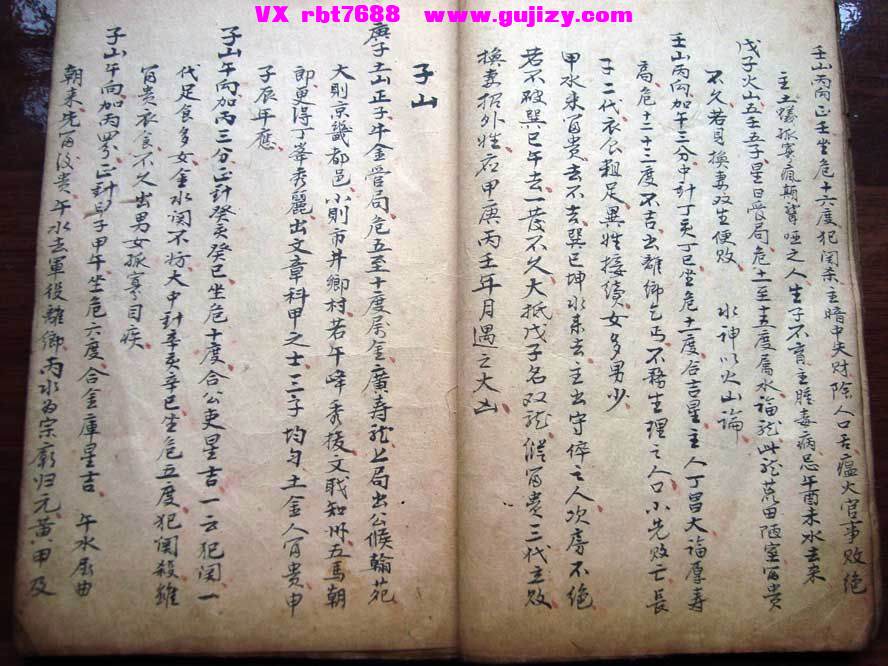 VX rbt7688 www.gujizy.com
壬山丙向正壬坐危十六度犯関杀主暗中失財除人口舌瘟火官事敗絕
主土孤寡瘋顛聾啞之人生子不育主腫毒病忌午酉未水去来
戊子火山五壬五子星日管局危十一至十五度属水福龍此龍荒田陋室富貴
不久若見換妻双生便敗 水神以火山論
壬山丙向加午三分中針丁亥丁巳坐危十一度合吉星主人丁昌大福厚寿
高危十二十三度不吉出離鄉乞丐不務生理之人口小先敗亡長
子二代衣食粗足異姓接續女多男少
甲水来富貴去不去巽巳坤水来去主出守倅之人次房不絕
若不破巽巳午去一發不久大抵戊子名双龍縱富貴三代主敗
換妻招外姓在甲庚丙壬年月遇之大凶
子山
庚子土山正子午金管局危五至十度属金廣寿龍上局出公候翰苑
大則京畿都邑小則市井鄉村若午峰秀拔文職知州五馬朝
即更得丁峯秀麗出文章科甲之士三子均匀土金人富貴申
子辰年應
子山午向加丙三分正針癸亥癸巳坐危十度合公吏星吉一云犯関一
代足食多女金水関不妨大中針辛亥辛巳坐危五度犯関殺雖
富貴衣食不久出男女孤寡目疾
子山午向加丙四分正針甲子甲午坐危六度合金庫星吉 午水屈曲
朝来先富後貴午水去軍役離鄉丙水為宗廟归元黄甲及